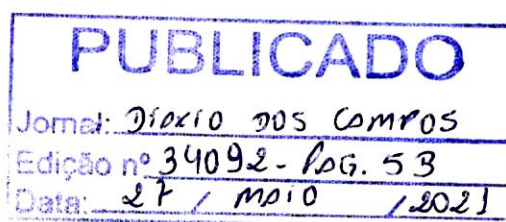 PUBLICADO
Jornal: DIÁRIO DOS CAMPOS
Edição nº 34092 - PAG. 5B
Data: 27 / MAIO / 2021